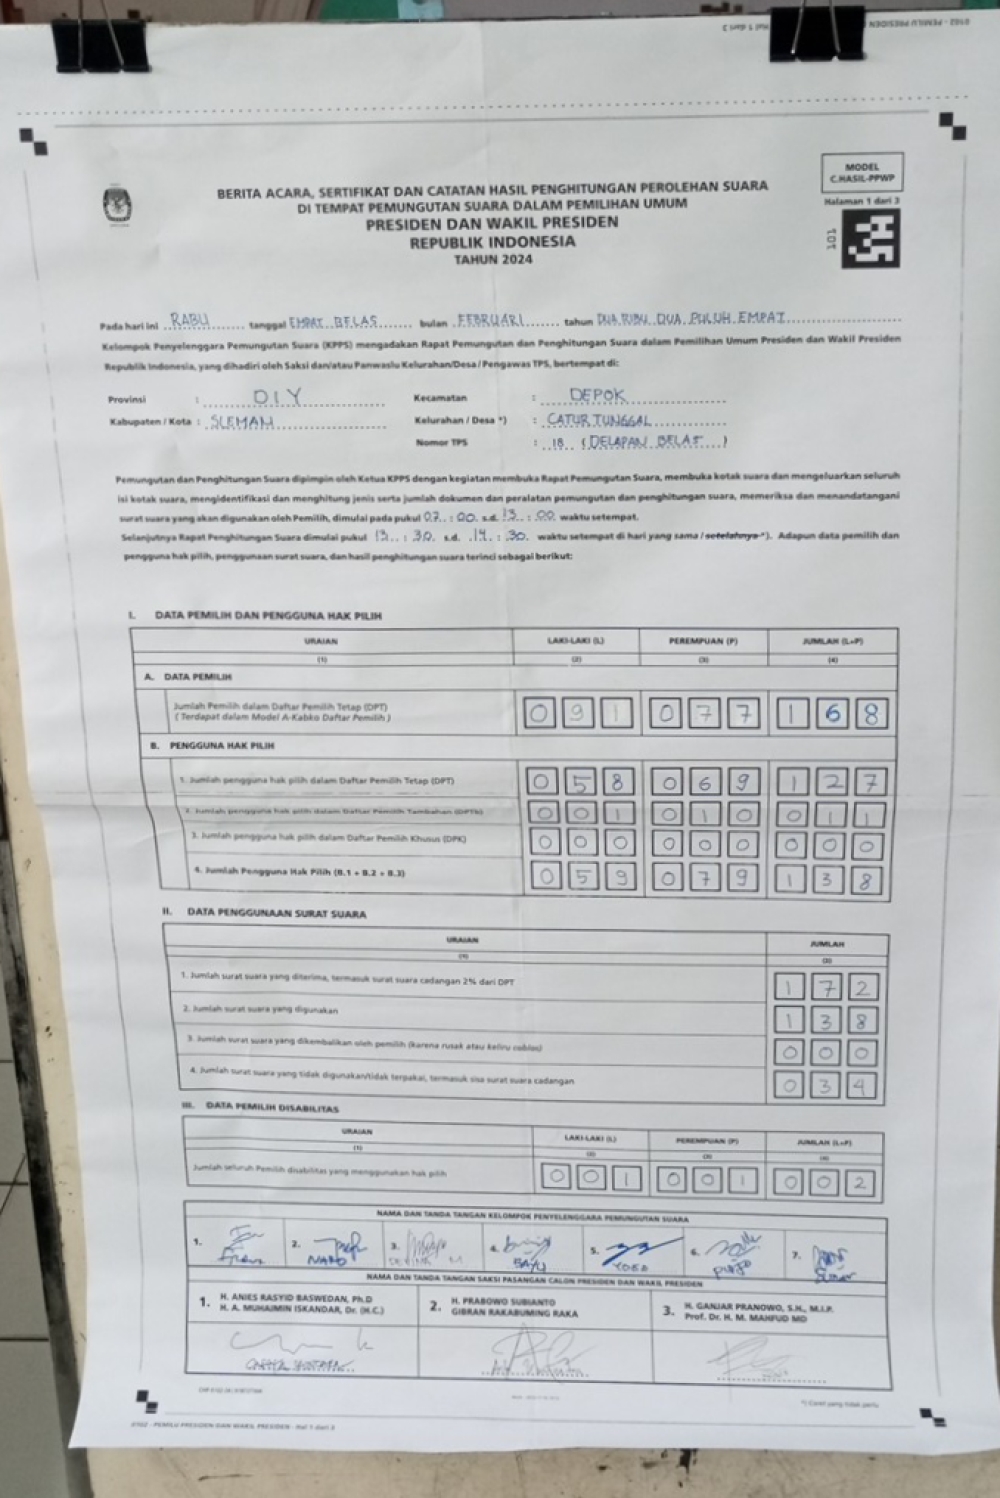 MODEL
C.HASIL-PPWP
Halaman 1 dari 3
101
BERITA ACARA, SERTIFIKAT DAN CATATAN HASIL PENGHITUNGAN PEROLEHAN SUARA
DI TEMPAT PEMUNGUTAN SUARA DALAM PEMILIHAN UMUM
PRESIDEN DAN WAKIL PRESIDEN
REPUBLIK INDONESIA
TAHUN 2024
Pada hari ini RABU tanggal EMPAT BELAS bulan FEBRUARI tahun DUA RIBU DUA PULUH EMPAT
Kelompok Penyelenggara Pemungutan Suara (KPPS) mengadakan Rapat Pemungutan dan Penghitungan Suara dalam Pemilihan Umum Presiden dan Wakil Presiden
Republik Indonesia, yang dihadiri oleh Saksi dan/atau Panwaslu Kelurahan/Desa / Pengawas TPS, bertempat di:
Provinsi : DIY Kecamatan : DEPOK
Kabupaten / Kota : SLEMAN Kelurahan / Desa *) : CATUR TUNGGAL
Nomor TPS : 18 (DELAPAN BELAS)
Pemungutan dan Penghitungan Suara dipimpin oleh Ketua KPPS dengan kegiatan membuka Rapat Pemungutan Suara, membuka kotak suara dan mengeluarkan seluruh
isi kotak suara, mengidentifikasi dan menghitung jenis serta jumlah dokumen dan peralatan pemungutan dan penghitungan suara, memeriksa dan menandatangani
surat suara yang akan digunakan oleh Pemilih, dimulai pada pukul 07 : 00 s.d. 13 : 00 waktu setempat.
Selanjutnya Rapat Penghitungan Suara dimulai pukul 13 : 30 s.d. 14 : 30 waktu setempat di hari yang sama / setelahnya *). Adapun data pemilih dan
pengguna hak pilih, penggunaan surat suara, dan hasil penghitungan suara terinci sebagai berikut:
I. DATA PEMILIH DAN PENGGUNA HAK PILIH
URAIAN LAKI-LAKI (L) PEREMPUAN (P) JUMLAH (L+P)
(1) (2) (3) (4)
A. DATA PEMILIH
Jumlah Pemilih dalam Daftar Pemilih Tetap (DPT)
(Terdapat dalam Model A-Kabko Daftar Pemilih) 091 077 168
B. PENGGUNA HAK PILIH
1. Jumlah pengguna hak pilih dalam Daftar Pemilih Tetap (DPT) 058 069 127
2. Jumlah pengguna hak pilih dalam Daftar Pemilih Tambahan (DPTb) 001 010 011
3. Jumlah pengguna hak pilih dalam Daftar Pemilih Khusus (DPK) 000 000 000
4. Jumlah Pengguna Hak Pilih (B.1 + B.2 + B.3) 059 079 138
II. DATA PENGGUNAAN SURAT SUARA
URAIAN JUMLAH
(1) (2)
1. Jumlah surat suara yang diterima, termasuk surat suara cadangan 2% dari DPT 172
2. Jumlah surat suara yang digunakan 138
3. Jumlah surat suara yang dikembalikan oleh pemilih (karena rusak atau keliru coblos) 000
4. Jumlah surat suara yang tidak digunakan/tidak terpakai, termasuk sisa surat suara cadangan 034
III. DATA PEMILIH DISABILITAS
URAIAN LAKI-LAKI (L) PEREMPUAN (P) JUMLAH (L+P)
(1) (2) (3) (4)
Jumlah seluruh Pemilih disabilitas yang menggunakan hak pilih 001 001 002
NAMA DAN TANDA TANGAN KELOMPOK PENYELENGGARA PEMUNGUTAN SUARA
1. 2. 3. 4. 5. 6. 7.
NANO BAYU YOGA
NAMA DAN TANDA TANGAN SAKSI PASANGAN CALON PRESIDEN DAN WAKIL PRESIDEN
1. H. ANIES RASYID BASWEDAN, Ph.D
H. A. MUHAIMIN ISKANDAR, Dr. (H.C.)
2. H. PRABOWO SUBIANTO
GIBRAN RAKABUMING RAKA
3. H. GANJAR PRANOWO, S.H., M.I.P.
Prof. Dr. H. M. MAHFUD MD
*) Coret yang tidak perlu
0102 - PEMILU PRESIDEN DAN WAKIL PRESIDEN - Hal 1 dari 3